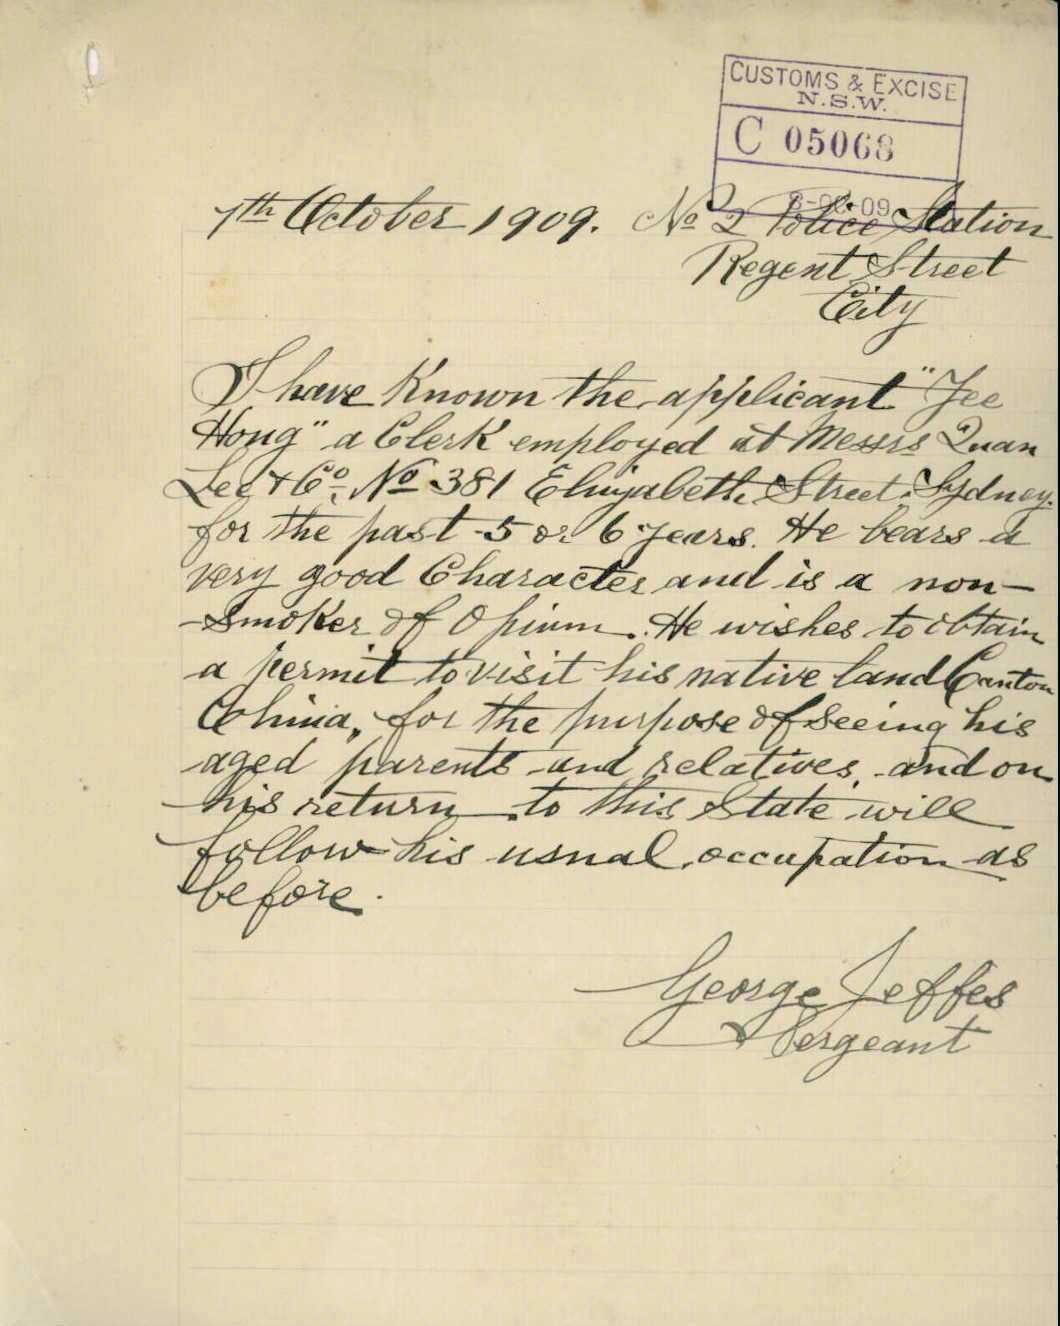 CUSTOMS & EXCISE
N.S.W.
C 05068
8-OC-09
7th October 1909. No 2 Police Station
Regent Street
City
I have known the applicant "Yee
Hong" a Clerk employed at Messrs Quan
Lee & Co, No 381 Elizabeth Street Sydney.
for the past 5 or 6 years. He bears a
very good Character and is a non-
-smoker of Opium. He wishes to obtain
a permit to visit his native land Canton
China, for the purpose of seeing his
aged parents and relatives, and on
his return to this State will
follow his usual occupation as
before.
George Jeffes
Sergeant